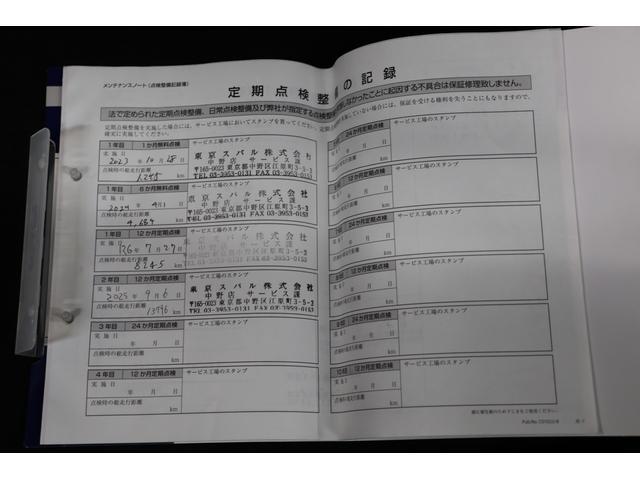 メンテナンスノート（点検整備記録簿）
定期点検整備の記録
法で定められた定期点検整備、日常点検整備及び弊社が指定する点検整備
しなかったことに起因する不具合は保証修理致しません。
定期点検整備を実施した場合には、サービス工場においてスタンプを貰ってください。
確実に実施してください。
していない場合には、保証を受ける権利を失うことにもなりますので、
1年目 1か月無料点検
サービス工場のスタンプ
実施日
2023年10月28日
点検時の総走行距離
1245 km
東京スバル株式会社
中野店 サービス課
〒165-0023 東京都中野区江原町3-5-3
TEL 03-3953-0131 FAX 03-3953-0153
1年目 6か月無料点検
サービス工場のスタンプ
実施日
2024年4月1日
点検時の総走行距離
km
東京スバル株式会社
中野店 サービス課
〒165-0023 東京都中野区江原町3-5-3
TEL 03-3953-0131 FAX 03-3953-0153
1年目 12か月定期点検
サービス工場のスタンプ
実施日
R6年7月27日
点検時の総走行距離
8245 km
東京スバル株式会社
中野店 サービス課
〒165-0023 東京都中野区江原町3-5-3
TEL 03-3953-0131 FAX 03-3953-0153
2年目 12か月定期点検
サービス工場のスタンプ
実施日
2025年9月6日
点検時の総走行距離
13796 km
東京スバル株式会社
中野店 サービス課
〒165-0023 東京都中野区江原町3-5-3
TEL 03-3953-0131 FAX 03-3953-0153
3年目 24か月定期点検
サービス工場のスタンプ
実施日
年 月 日
点検時の総走行距離
km
4年目 12か月定期点検
サービス工場のスタンプ
実施日
年 月 日
点検時の総走行距離
km
24か月定期点検
サービス工場のスタンプ
年 月 日
km
12か月定期点検
サービス工場のスタンプ
年 月 日
km
24か月定期点検
サービス工場のスタンプ
年 月 日
km
12か月定期点検
サービス工場のスタンプ
年 月 日
km
24か月定期点検
サービス工場のスタンプ
年 月 日
km
12か月定期点検
サービス工場のスタンプ
年 月 日
km